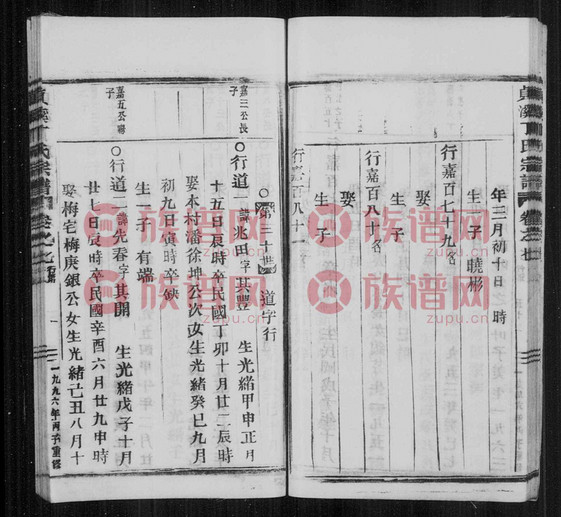 年三月初十日 時
生一子 曉彬
行嘉百七十九名
娶
生 子
行嘉百八十名
娶
生 子
行嘉百八十一
○第三十世 道字行
嘉三公長子
○行道一諱兆田字其豐 生光緒甲申正月
十五日辰時卒民國丁卯十月廿二辰時
娶本村潘徐坤公次女生光緒癸巳九月
初九日寅時卒缺
生一子 有端
嘉五公
子
○行道二諱先春字其開 生光緒戊子十月
廿七日寅時卒民國辛酉六月廿九申時
娶梅宅梅庚銀公女生光緒己丑八月十
一九九六年丙子重修
族谱网
zupu.cn
族谱网
zupu.cn
族谱网
zupu.cn
族谱网
zupu.cn